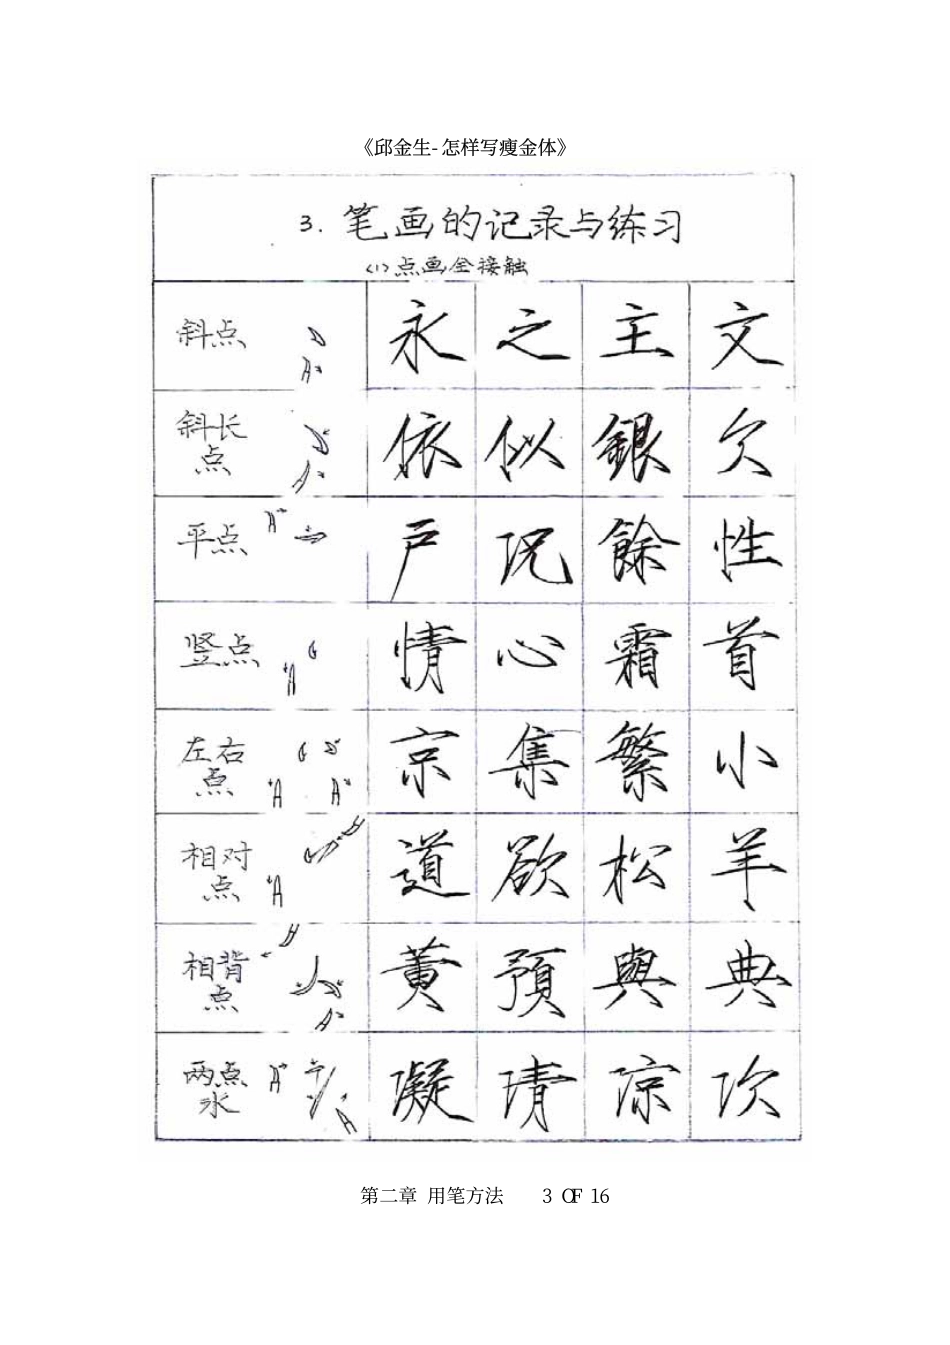 《邱金生-怎样写瘦金体》
3. 笔画的记录与练习
(1)点画全接触
斜点 永 之 主 文
斜长点 依 似 銀 欠
平点 戸 况 餘 性
竖点 情 心 霜 首
左右点 京 集 繁 小
相对点 道 欲 松 羊
相背点 黄 預 與 典
两点水 凝 凊 凉 次
第二章 用笔方法 3 OF 16